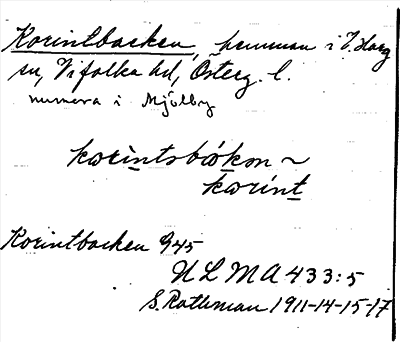 Korintbacken, hemman i V. Harg
sn, Vifolka hd, Österg. l.
numera i Mjölby
korintsbákən ~
korint
Korintbacken 945
ULMA 433:5
S. Rathsman 1911-14-15-17